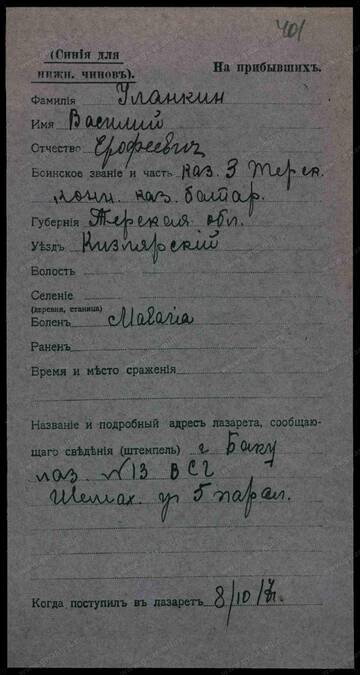 401
(Синія для
нижн. чиновъ).
На прибывшихъ.
Фамилія Уланкин
Имя Василий
Отчество Ерофеевич
Воинское званіе и часть каз. 3 Терск.
конн. каз. батар.
Губернія Терская обл.
Уѣздъ Кизлярскій
Волость
Селеніе
(деревня, станица)
Боленъ Малагіа
Раненъ
Время и мѣсто сраженія
Названіе и подробный адресъ лазарета, сообщаю-
щаго свѣдѣнія (штемпель) г Баку
лаз. №13 ВСГ
Шемах. ул 5 парал.
Когда поступилъ въ лазаретъ 8/10